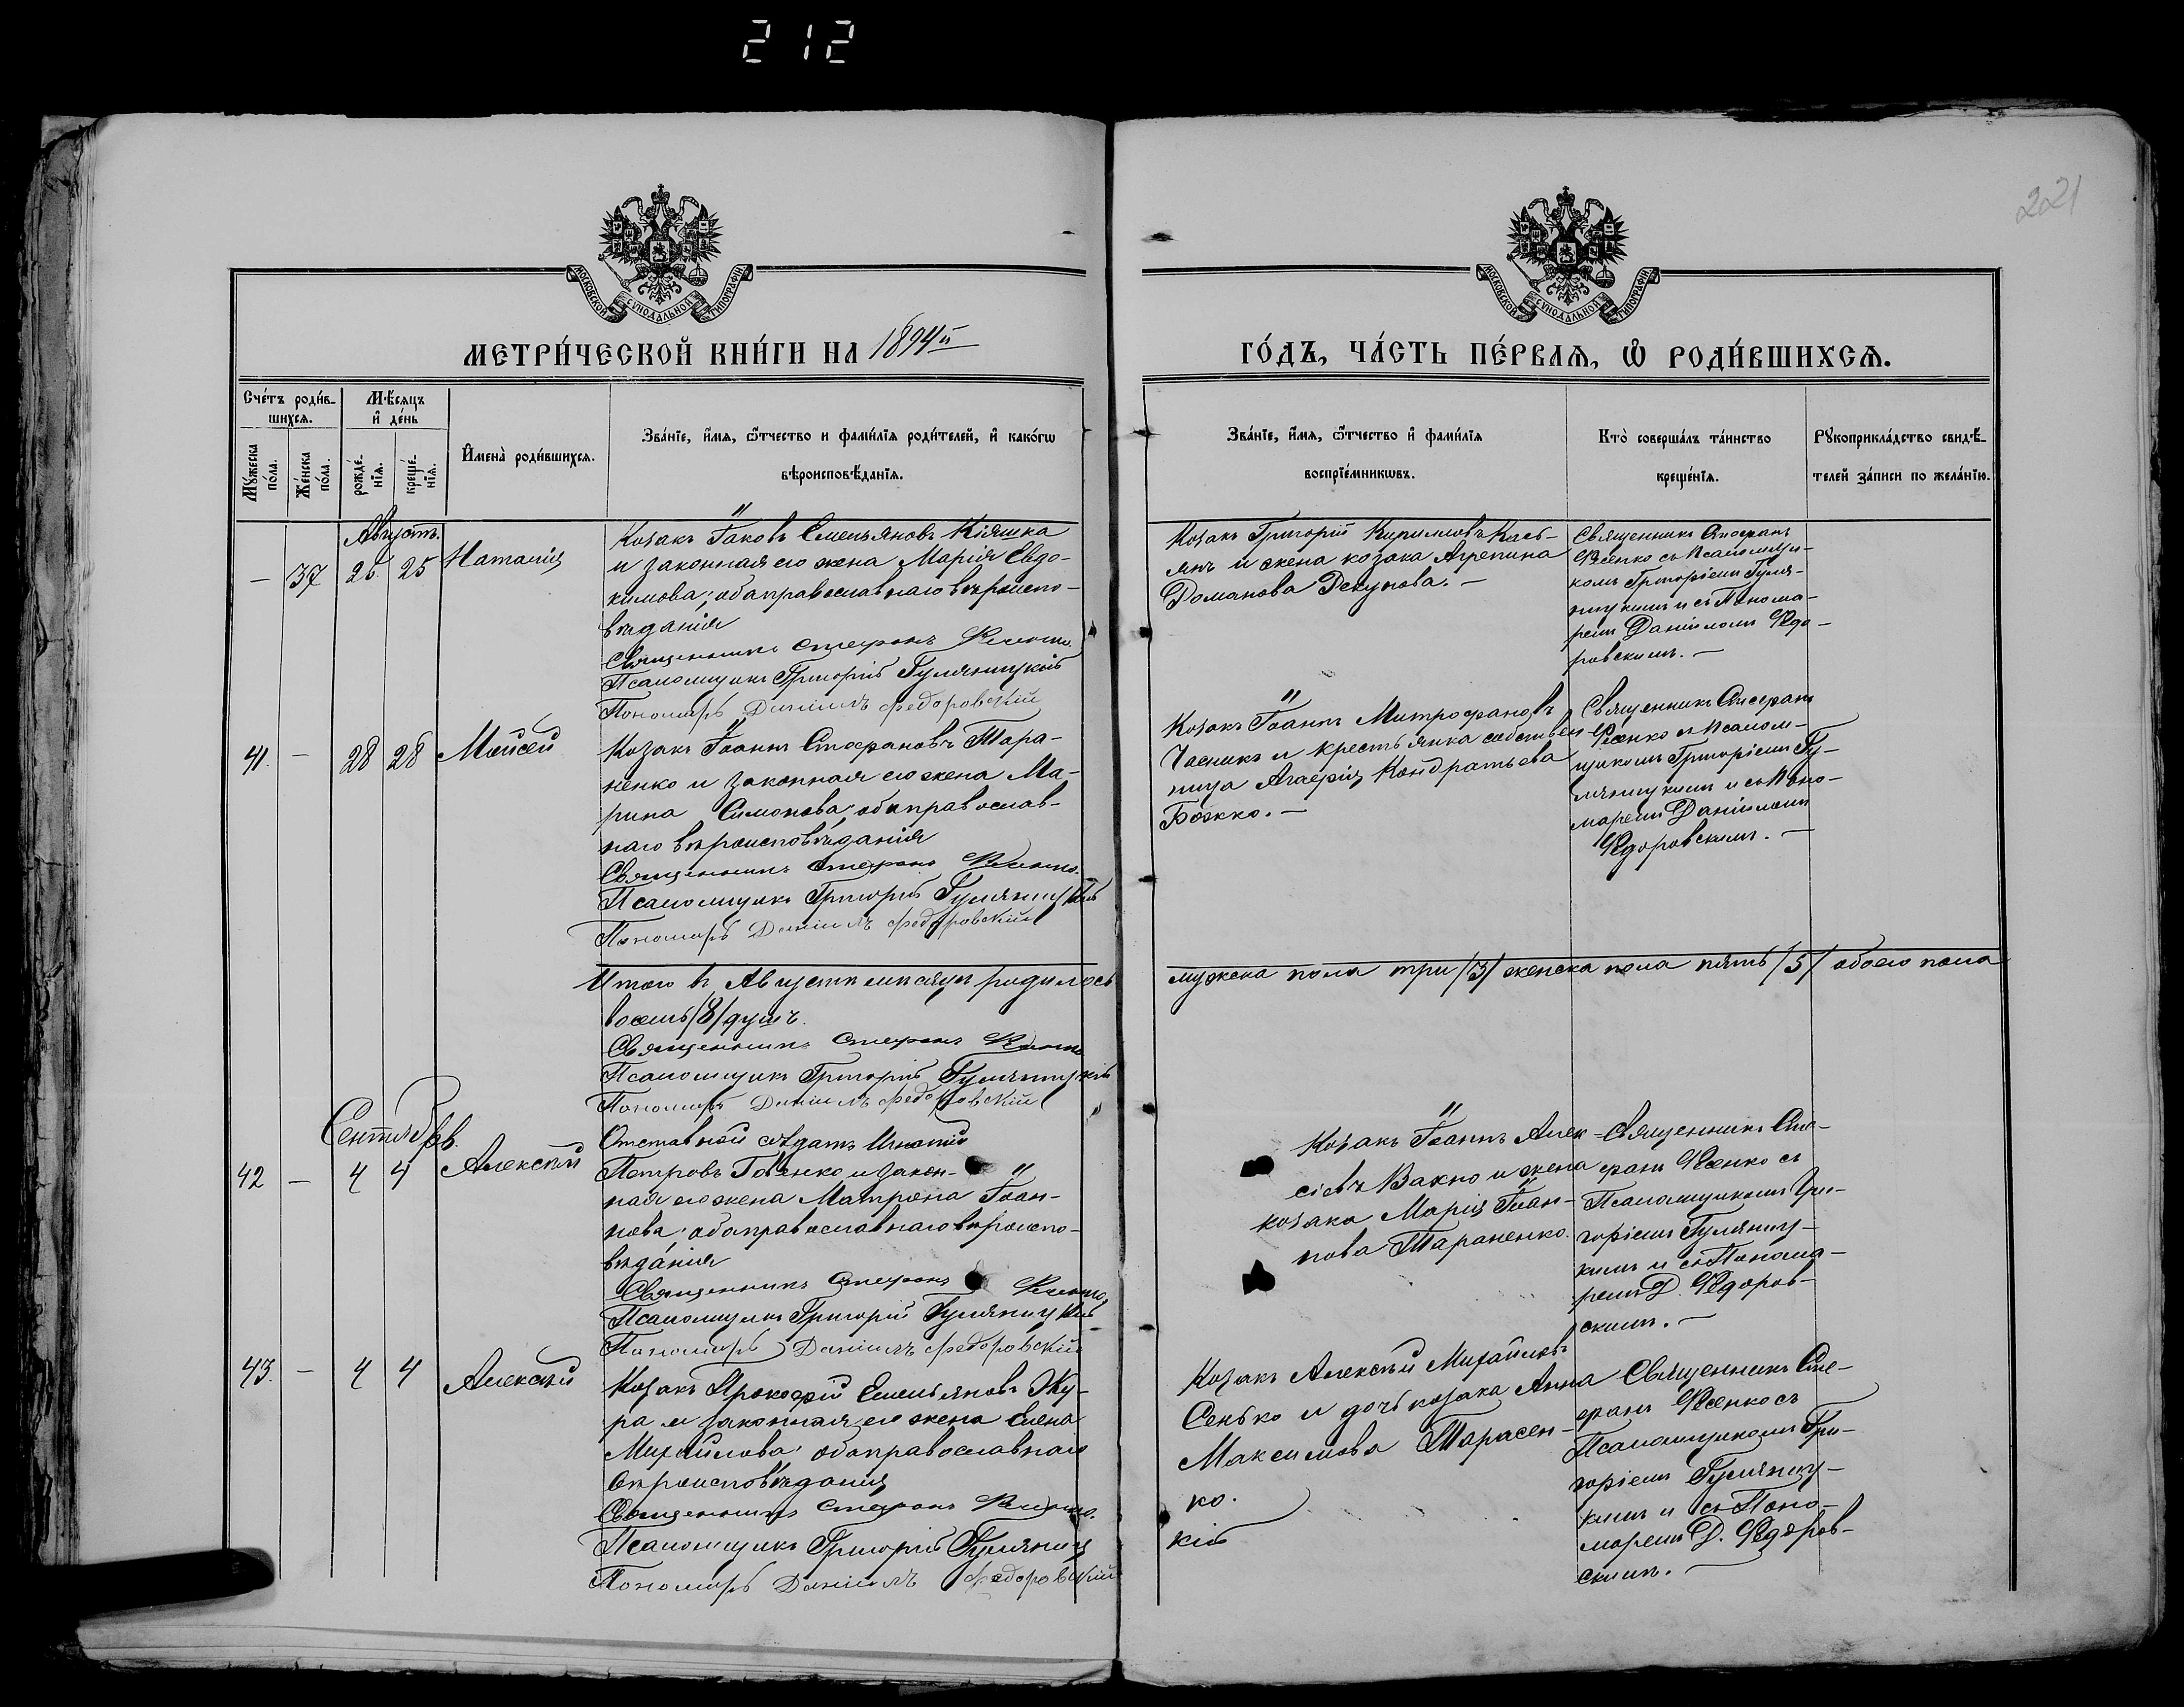 212
221
МОСКОВСКОЙ СУНОДАЛЬНОЙ ТИПОГРАФІИ
МОСКОВСКОЙ СУНОДАЛЬНОЙ ТИПОГРАФІИ
МЕТРИ́ЧЕСКОЙ КНИ́ГИ НА 1894й
ГО́ДЪ, ЧА́СТЬ ПЕ́РВАѦ, Ѡ РОДИ́ВШИХСѦ.
Сче́тъ роди́в-
шихсѧ.
Мѣ́сѧцъ
и҆ де́нь
Мꙋ́жеска
по́ла.
Же́нска
по́ла.
рожде́-
нїѧ.
креще́-
нїѧ.
И҆мена̀ роди́вшихсѧ.
Зва́нїе, и҆́мѧ, ѻ҆́тчество и фами́лїѧ роди́телей, и҆ како́гѡ
вѣроисповѣ́данїѧ.
Зва́нїе, и҆́мѧ, ѻ҆́тчество и҆ фами́лїѧ
воспрїе́мникѡвъ.
Кто̀ соверша́лъ та́инство
креще́нїѧ.
Рꙋкоприкла́дство свидѣ́-
телей за́писи по жела́нїю.
Августъ.
— 37 26. 25 Наталія
Козакъ Іаковъ Емельяновъ Кіяшка
и законная его жена Марія Евдо-
кимова; оба православнаго вѣроиспо-
вѣданія
Священникъ Стефанъ
Псаломщикъ Григорій Гуляницкій
Пономарь Даніилъ Федоровскій
Козакъ Григорій
и жена козака Агрепина
Романова
Священникъ Стефанъ
съ Псаломщи-
комъ Григоріемъ Гуля-
ницкимъ и съ Понома-
ремъ Даніиломъ Федо-
ровскимъ. —
41. — 28 28 Мойсей
Козакъ Іоаннъ Стефановъ Тара-
ненко и законная его жена Ма-
рина Симонова; оба православ-
наго вѣроисповѣданія
Священникъ Стефанъ
Псаломщикъ Григорій Гуляницкій
Пономарь Даніилъ Федоровскій
Козакъ Іоаннъ Митрофановъ
Часникъ и крестьянка собствен-
ница Агафія Кондратьева
Божко. —
Священникъ Стефанъ
съ Псалом-
щикомъ Григоріемъ Гу-
ляницкимъ и съ Поно-
маремъ Даніиломъ
Федоровскимъ. —
Итого въ Августѣ мѣсяцѣ родилось
мужеска пола три /3/ женска пола пять /5/ обоего пола
восемь /8/ душъ.
Священникъ Стефанъ
Псаломщикъ Григорій Гуляницкій
Пономарь Даніилъ Федоровскій
Сентябрь.
42 — 4 4 Алексѣй
Отставной солдатъ Игнатій
Петровъ и закон-
ная его жена Матрона Іоан-
нова; оба православнаго вѣроиспо-
вѣданія
Священникъ Стефанъ
Псаломщикъ Григорій Гуляницкій
Пономарь Даніилъ Федоровскій
Козакъ Іоаннъ Алек-
сіевъ Вакно и жена
козака Марія Іоан-
нова Тараненко.
Священникъ Сте-
фанъ съ
Псаломщикомъ Гри-
горіемъ Гуляниц-
кимъ и съ Понома-
ремъ Д. Федоров-
скимъ. —
43. — 4 4 Алексѣй
Козакъ Прокофій Емельяновъ Жу-
ра и законная его жена Елена
Михайлова; оба православнаго
вѣроисповѣданія
Священникъ Стефанъ
Псаломщикъ Григорій Гуляниц
кій
Пономарь Даніилъ Федоровскій
Козакъ Алексѣй Михайловъ
Сенько и дочь козака Анна
Максимова Тарасен-
ко.
Священникъ Сте-
фанъ съ
Псаломщикомъ Гри-
горіемъ Гуляниц-
кимъ и съ Поно-
маремъ Д. Федоров-
скимъ. —